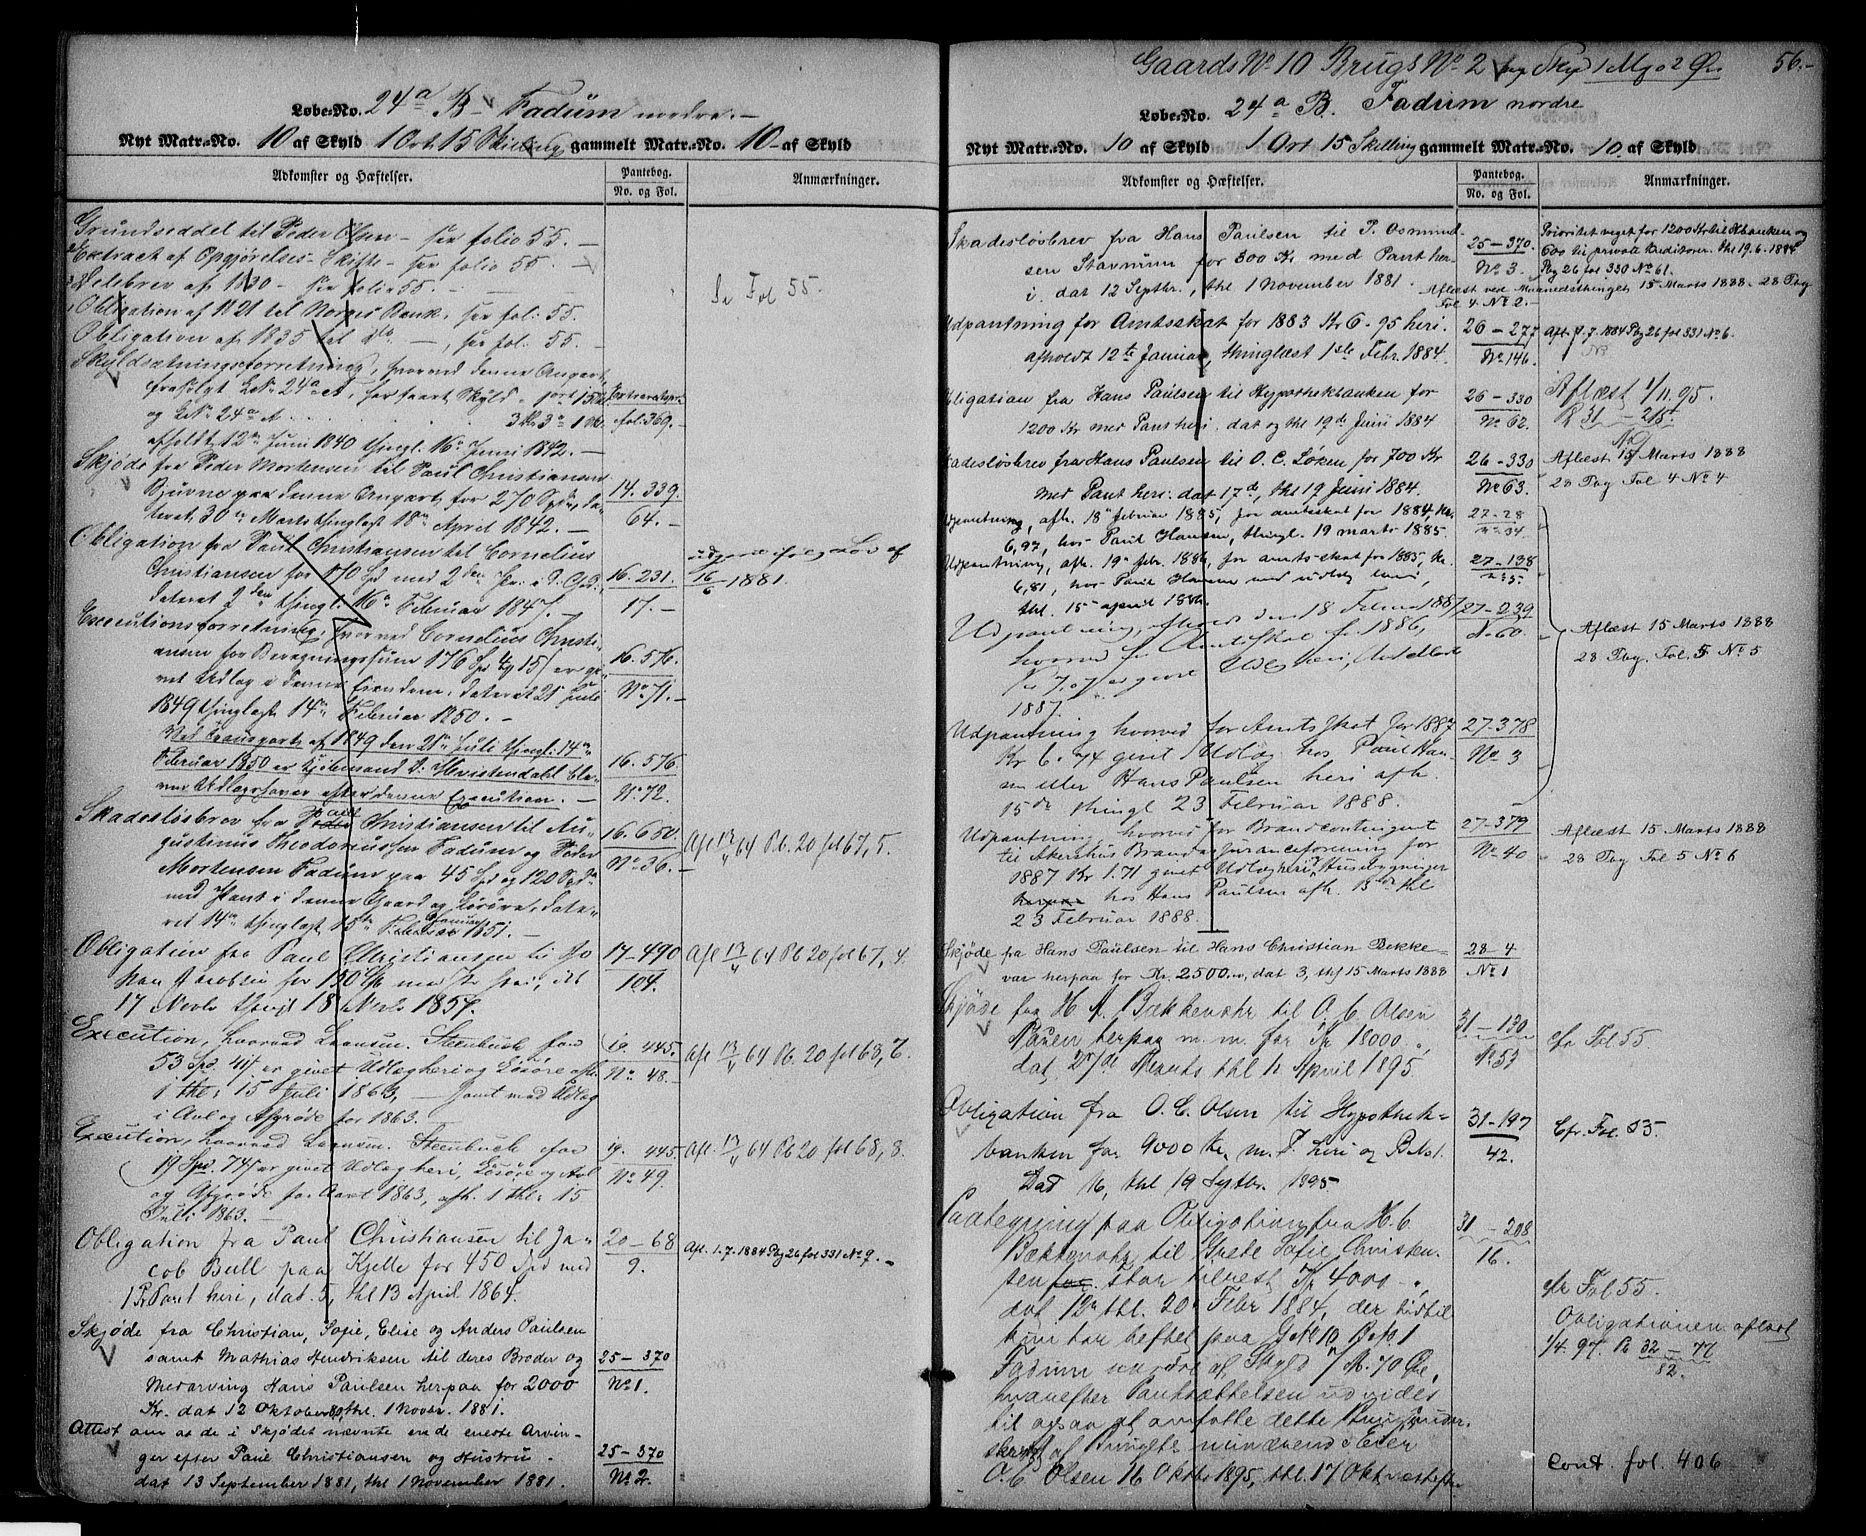 Løbe-No. 24a B. Fadum nordre. –
Nyt Matr.-No. 10 af Skyld 1 Ort 15 Skilling gammelt Matr.-No. 10 – af Skyld
Adkomster og Hæftelser.
Pantebog.
No. og Fol.
Anmærkninger.
Grundseddel til Peder Olsen – see folio 55. –
Extract af Opgjørelses-Skifte – see folio 55. –
af 1830 – see folio 55. –
Obligation af 1821 til Norges Bank, see fol: 55.
Obligation af 1835 til do —, see fol: 55. –
Se Fol 55.
Skyldsætningsforretning, hvorved denne Anpart,
og LNo 24a A
afholdt 12te Juni 1840 thingl. 16de Juni 1842. –
fol: 369. –
Skjøde fra Peder Mortensen til Paul Christiansen
Bjuvne paa denne Anpart for 270 Spd, da-
teret 30te Marts thinglæst 18de April 1842. –
14. 339.
64. –
Obligation fra Paul Christiansen til Cornelius
Christiansen for 170 Spd med 2den Pr. i
dateret 2den thingl. 16de Februar 1847. –
16. 231.
17. –
16/6 1881.
Executionsforretning, hvorved Cornelius Christi-
ansen for Beregningssum 176 Spd 15 er gi-
vet Udlæg i denne Eiendom, dateret 21de Juli
1849 thinglæst 14de Februar 1850. –
16. 576.
No 71. –
Ved Transport af 1849 den 21de Juli thingl: 14de
Februar 1850 er Kjøbmand D: Hvistendahl ble-
ven Udlægshaver efter denne Execution. –
16. 576
No 72.
Skadesløsbrev fra Paul Christiansen til Au-
gustinus Theodoriussen Fadum og Peder
Mortensen Fadum paa 45 Spd og 120 Spd
med Pant i denne Gaard og Løsøre, date-
ret 14de thinglæst 15de Januar 1851. –
16. 650.
No 36. –
Afl 13/4 64 Pb. 20 fol 67, 5.
Obligation fra Paul Christiansen til Jo
han Jacobsen for 130 Spd
17 Novbr thingl 18 Novbr 1857.
17-490
104.
Afl 13/4 64 Pb 20 fol 67, 4.
Execution, hvorved Lænsm. Steenbuch for
53 Spd 41 er givet Udlæg heri og Løsøre afh.
1 thl: 15 Juli 1863, – samt med Udlæg
i Avl og Afgrøde for 1863.
19. 445.
No 48. –
Afl 13/4 64 Pb. 20 fol 68, 7.
Execution, hvorved Lænsm. Steenbuch for
19 Spd. 74 er givet Udlæg heri, Løsøre og Avl
og Afgrøde for Aaret 1863, afh. 1 thl: 15
Juli 1863. –
19. 445.
No 49.
Afl. 13/4 64 Pb 20 fol 68, 8.
Obligation fra Paul Christiansen til Ja-
cob Bull paa Kjelle for 450 Spd med
1 Pr Pant heri, dat. 5, thl 13 April 1864.
20 – 68
9.
Afl. 1. 7. 1884 Pbg 26 fol 331 No 9. –
Skjøde fra Christian, Sofie, Elise og Anders Paulsen
samt Mathias Hendriksen til deres Broder og
Medarving Hans Paulsen herpaa for 2000
Kr. dat 12 Oktober 80, thl. 1 Novbr. 1881.
25 – 370
No 1.
Attest om at de i Skjødet nævnte er de eneste Arvin-
ger efter Paul Christiansen og Hustru.
dat 13 September 1881, thl 1 November 1881.
25 – 370
No 2.
Gaards No 10 Brugs No 2 ny Skyld 1 M 02 Øre
56. –
Løbe-No. 24a B. Fadum nordre
Nyt Matr.-No. 10 af Skyld 1 Ort 15 Skilling gammelt Matr.-No. 10. af Skyld
Adkomster og Hæftelser.
Pantebog.
No. og Fol.
Anmærkninger.
Skadesløsbrev fra Hans Paulsen til P. Osmund-
sen Stavnum for 300 Kr. med Pant her-
i. dat 12 Septbr., thl 1 November 1881.
25 – 370.
No 3.
Prioritet veget for 1200 Kr til Hbanken og
600 til private Kreditorer. thl 19. 6. 1884
Pbg 26 fol 330 No 61.
Aflæst ved Maanedsthinget 15 Marts 1888. 28 Pbg
Fol 4 No 2.
Udpantning for Amtsskat for 1883 Kr 6. 95 heri.
afholdt 12te Januar, thinglæst 1ste Febr. 1884.
26 – 277
No 146.
Afl 1. 7. 1884 Pbg 26 fol 331 No 6.
Obligation fra Hans Paulsen til Hypothekbanken for
1200 Kr med Pant heri. dat og thl 19de Juni 1884
26 – 330
No 62.
Aflæst 1/11 95.
P 31 – 215.
Skadesløsbrev fra Hans Paulsen til O. C. Løken for 700 Kr
med Pant heri. dat 17de, thl 19 Juni 1884.
26 – 330
No 63.
Aflæst 15 Marts 1888
28 Pbg Fol 4 No 4
Udpantning, afh. 18 februar 1885, for amtsskat for 1884 Kr.
6,97, hos Paul Hansen, thingl. 19 marts 1885.
27-28
No 34.
Udpantning, afh. 19 febr. 1886, for amtsskat for 1885, Kr.
6,81, hos Paul Hansen med udlæg heri,
thl. 15 april 1886.
27-138
No 5.
Udpantning, afholdt den 18 Februar 1887,
hvorved for Amtsskat for 1886,
Kr 7,07 er givet Udlæg heri,
1887.
27-239
No 60.
Aflæst 15 Marts 1888
28 Pbg. Fol. 5 No 5
Udpantning hvorved for Amtsskat for 1887
Kr 6. 74 givet Udlæg hos Paul Han
sen eller Hans Paulsen heri afh.
15de thingl 23 Februar 1888.
27-378
No 3
Udpantning, hvorved for Brandcontingent
til Akershus Brandassuranceforening for
1887 Kr 1.71 givet Udlæg heri, Husebygninger
herpaa hos Hans Paulsen afh. 13de thl
23 Februar 1888.
27-379
No 40
Aflæst 15 Marts 1888
28 Pbg Fol 5 No 6
Skjøde fra Hans Paulsen til Hans Christian Bekke-
var herpaa for Kr. 2500.00, dat 3, thl 15 Marts 1888
28 – 4
No 1
Skjøde fra H. C. Bækkevahr til O. C. Olsen
herpaa m. m. for Kr 18000
dat 27de Marts thl 1 April 1895.
31 – 130
No 53
cfr Fol 55.
Obligation fra O. C. Olsen til Hypothek-
banken for 9000 Kr. m. P. heri og B. No 1.
Dat 16, thl 19 Septbr. 1895
31-197
42.
Cfr. Fol. 55.
Paategning paa Obligation fra H. C.
Bækkevahr til Grethe Sofie Christen-
sen for stor tilrest Kr 4000 –,
dat 12te thl. 20 Febr 1884, der hidtil
kun har heftet paa GNo 10 BNo 1
Fadum nordre af Skyld M. 70 Øre,
hvorefter Pantsættelsen udvides
til ogsaa at omfatte dette Brug, under-
skrevet af Brugets nuværende Eier
O. C. Olsen 16 Oktbr 1895, thl. 17 Okt næstefter.
31 – 208
16.
cfr Fol 55.
Obligationen aflæst
1/4. 97. Pb 32 – 77
82.
Cont. fol. 406